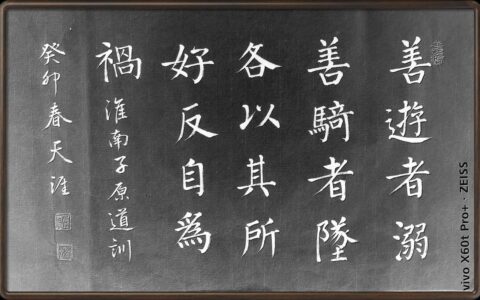 善遊者溺
善騎者墜
各以其所
好反自為
禍
淮南子原道訓
癸卯春天涯
vivo X60t Pro+ · ZEISS